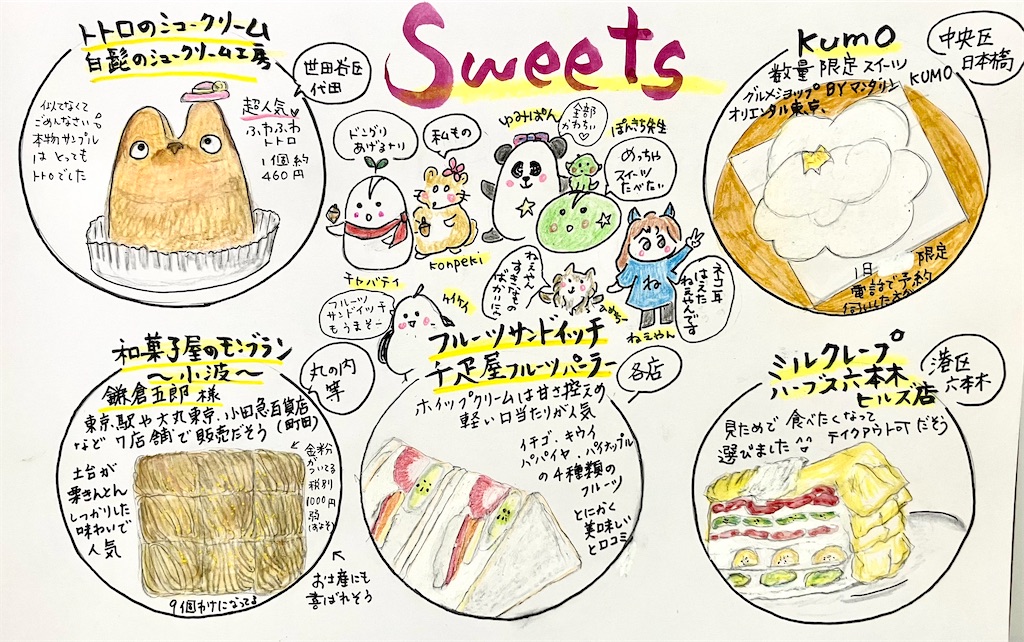 トトロのシュークリーム
白髭のシュークリーム工房
世田谷区
代田
似てなくて
ごめんなさい
本物サンプル
は とっても
トトロでした
超人気
ふわふわ
トトロ
1個約
460円
Sweets
どんぐり
あげるナリ
私もの
ゆみぱん
全部
かわちい♡
ぽんきち先生
めっちゃ
スイーツ
たべたい
チャバティ
konpeki
フルーツ
サンドイッチ
もうまそー
ケイケイ
ねぇやん
すきなもの
ばかいにゃ
ね
ネコ耳
はえた
ねぇやんです
ねぇやん
KUMO
数量限定スイーツ
グルメショップ BY マンダリン
オリエンタル東京、
KUMO
中央区
日本橋
限定
1日
電話で予約
和菓子屋のモンブラン
～小波～
鎌倉五郎様
丸の内
等
東京駅や大丸東京、小田急百貨店
など7店舗で販売だそう(町田)
土台が
栗きんとん
しっかりした
味わいで
人気
金粉
がついてる
税別
1000円
弱
(およそ)
9個わけになってる
お土産にも
喜ばれそう
フルーツサンドイッチ
千疋屋フルーツパーラー
各店
ホイップクリームは甘さ控えめ
軽い口当たりが人気
イチゴ、キウイ
パパイヤ、パイナップル
の4種類の
フルーツ
とにかく
美味しい
と口コミ
ミルクレープ
ハーブス六本木
ヒルズ店
港区
六本木
見ためで食べたくなって
選びました
テイクアウト可だそう